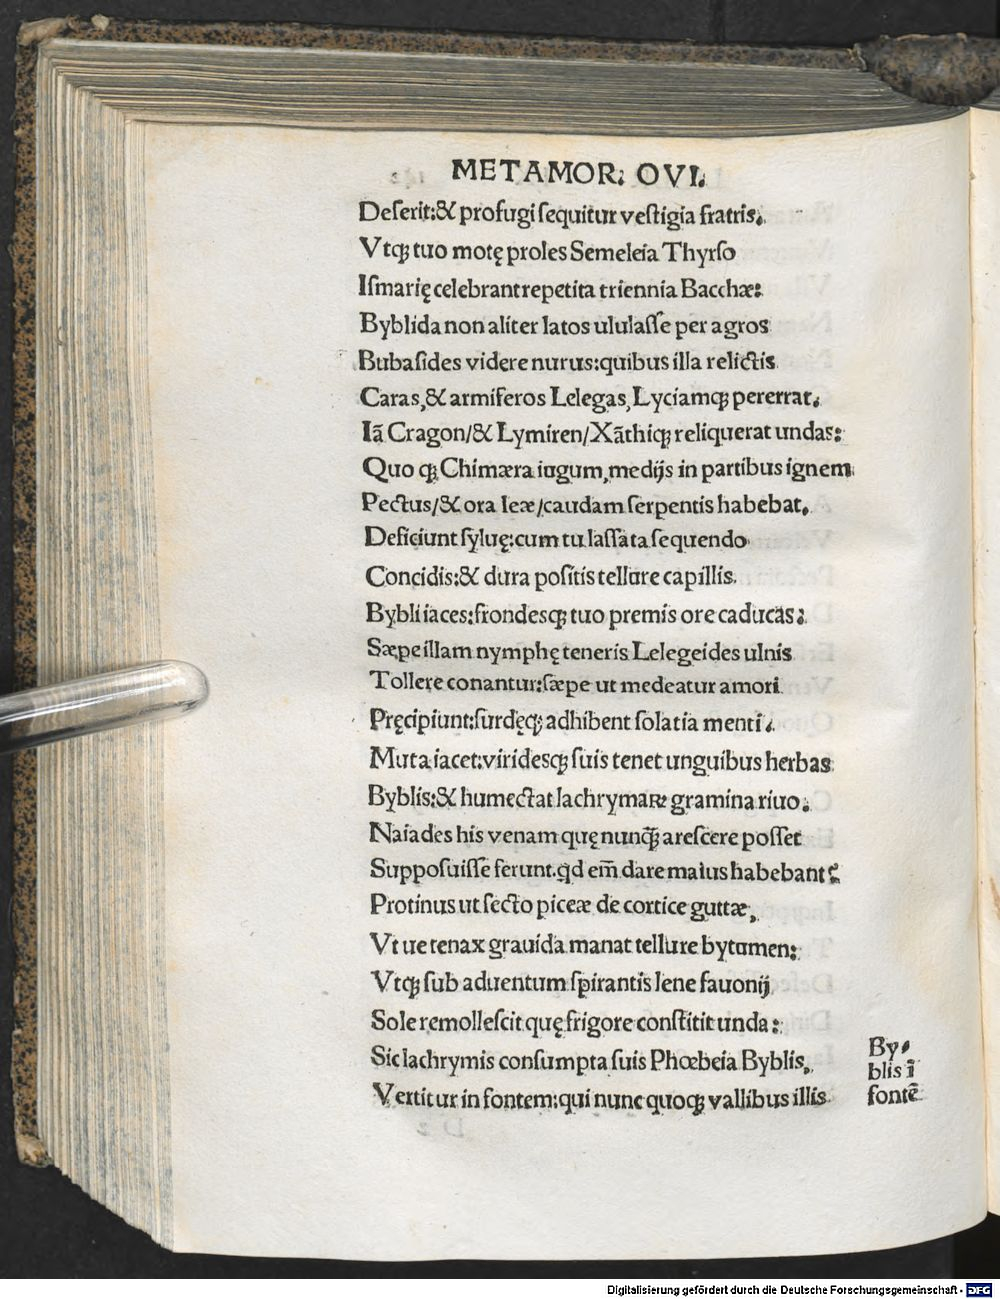 METAMOR: OVI.
Deſerit:& profugi ſequitur veſtigia fratris.
Vtqꝫ tuo motę proles Semeleia Thyrſo
Iſmarię celebrant repetita triennia Bacchæ:
Byblida non aliter latos ululaſſe per agros
Bubaſides videre nurus:quibus illa relictis
Caras,& armiferos Lelegas,Lyciamqꝫ pererrat.
Iã Cragon/& Lymiren/Xãthiqꝫ reliquerat undas:
Quo qꝫ Chimæra iugum,medijs in partibus ignem
Pectus/& ora leæ/caudam ſerpentis habebat.
Deficiunt ſyluę:cum tu laſſata ſequendo
Concidis:& dura poſitis tellure capillis.
Bybli iaces:frondesqꝫ tuo premis ore caducas:
Sæpe illam nymphę teneris Lelegeides ulnis
Tollere conantur:ſæpe ut medeatur amori
Pręcipiunt:ſurdęqꝫ adhibent ſolatia menti.
Muta iacet:viridesqꝫ ſuis tenet unguibus herbas
Byblis:& humectat lachrymaꝝ gramina riuo.
Naiades his venam quę nunqꝫ̃ areſcere poſſet
Suppoſuiſſe ferunt.qd em̃ dare maius habebant?
Protinus ut ſecto piceæ de cortice guttæ,
Vt ue tenax grauida manat tellure bytumen:
Vtqꝫ ſub aduentum ſpirantis lene fauonij
Sole remolleſcit quę frigore conſtitit unda:
Sic lachrymis conſumpta ſuis Phœbeia Byblis,
Vertitur in fontem:qui nunc quoqꝫ vallibus illis
By-
blis ĩ
fontẽ
Digitalisierung gefördert durch die Deutsche Forschungsgemeinschaft - DFG